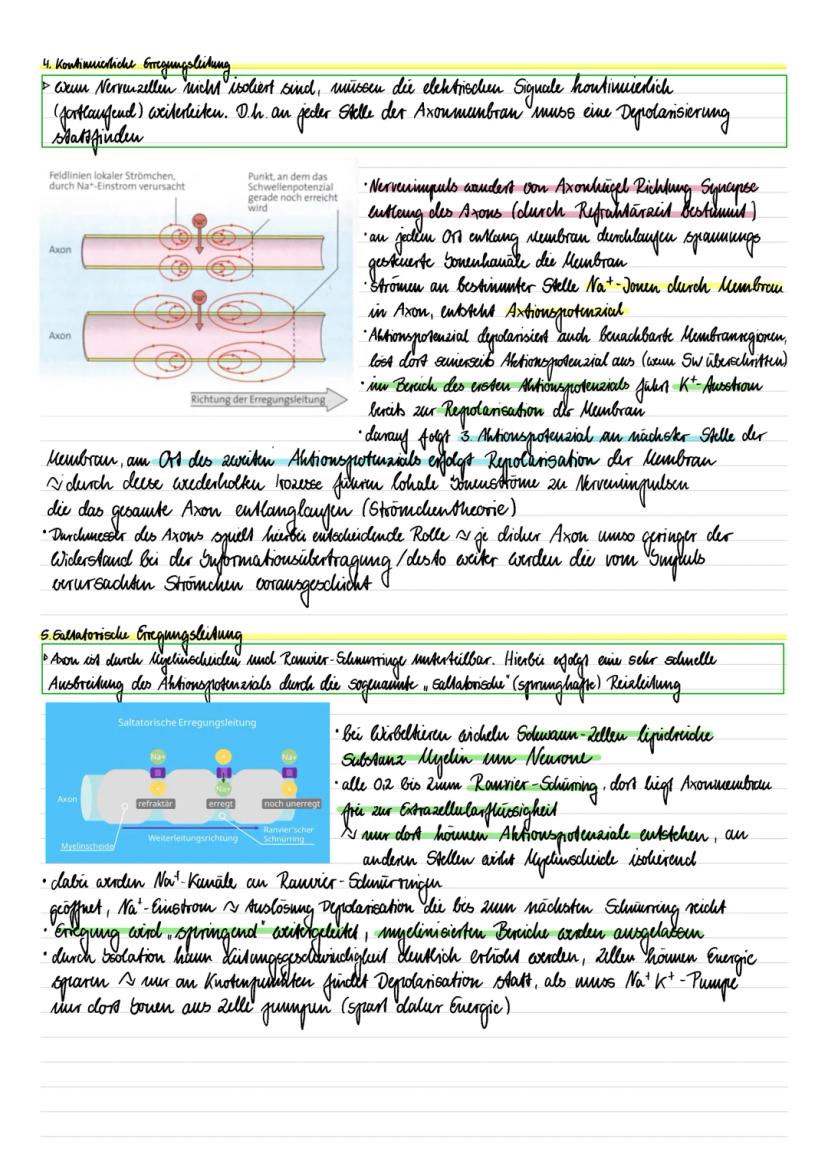 4. Kontinuierliche Erregungsleitung
▷ wenn Nervenzellen nicht isoliert sind, müssen die elektrischen Signale kontinuierlich
(fortlaufend) weiterleiten. D.h. an jeder Stelle der Axonmembran muss eine Depolarisierung
stattfinden
Feldlinien lokaler Strömchen,
durch Na⁺-Einstrom verursacht
Punkt, an dem das
Schwellenpotenzial
gerade noch erreicht
wird
Na⁺
Axon
Na⁺
Axon
Richtung der Erregungsleitung
· Nervenimpuls wandert von Axonhügel Richtung Synapse
entlang des Axons (durch Refraktärzeit bestimmt)
· an jedem Ort entlang Membran durchlaufen spannungs
gesteuerte Ionenkanäle die Membran
· strömen an bestimmter Stelle Na⁺-Ionen durch Membran
in Axon, entsteht Axtionspotenzial
· Aktionspotenzial depolarisiert auch benachbarte Membranregionen,
löst dort seinerseits Aktionspotenzial aus (wenn SW überschritten)
· im Bereich des ersten Aktionspotenzials führt K⁺-Ausstrom
bereits zur Repolarisation der Membran
· darauf folgt 3. Aktionspotenzial an nächster Stelle der
Membran, am Ort des zweiten Aktionspotenzials erfolgt Repolarisation der Membran
↝ durch diese wiederholten Prozesse führen lokale Ionenströme zu Nervenimpulsen
die das gesamte Axon entlanglaufen (Strömchentheorie)
· Durchmesser des Axons spielt hierbei entscheidende Rolle ↝ je dicker Axon umso geringer der
Widerstand bei der Informationsübertragung / desto weiter werden die vom Impuls
verursachten Strömchen vorausgeschickt
5. Saltatorische Erregungsleitung
▷ Axon ist durch Myelinscheiden und Ranvier-Schnürringe unterteilbar. Hierbei erfolgt eine sehr schnelle
Ausbreitung des Aktionspotenzials durch die sogenannte „saltatorische" (sprunghafte) Reizleitung
Saltatorische Erregungsleitung
Na+
+
Na+
Axon
+
Na+
+
refraktär
erregt
noch unerregt
Myelinscheide
Weiterleitungsrichtung
Ranvier'scher
Schnürring
· bei Wirbeltieren wickeln Schwann-Zellen lipidreiche
Substanz Myelin um Neurone
· alle 0,2 bis 2mm Ranvier-Schürring, dort liegt Axonmembran
frei zur Extrazellularflüssigkeit
↝ nur dort können Aktionspotenziale entstehen, an
anderen Stellen wirkt Myelinscheide isolierend
· dabei werden Na⁺-Kanäle an Ranvier-Schnürringen
geöffnet, Na⁺-Einstrom ↝ Auslösung Depolarisation die bis zum nächsten Schnürring reicht
· Erregung wird „springend" weitergeleitet, myelinisierten Bereiche werden ausgelassen
· durch Isolation kann Leitungsgeschwindigkeit deutlich erhöht werden, Zellen können Energie
sparen ↝ nur an Knotenpunkten findet Depolarisation statt, also muss Na⁺ K⁺-Pumpe
nur dort Ionen aus Zelle pumpen (spart daher Energie)